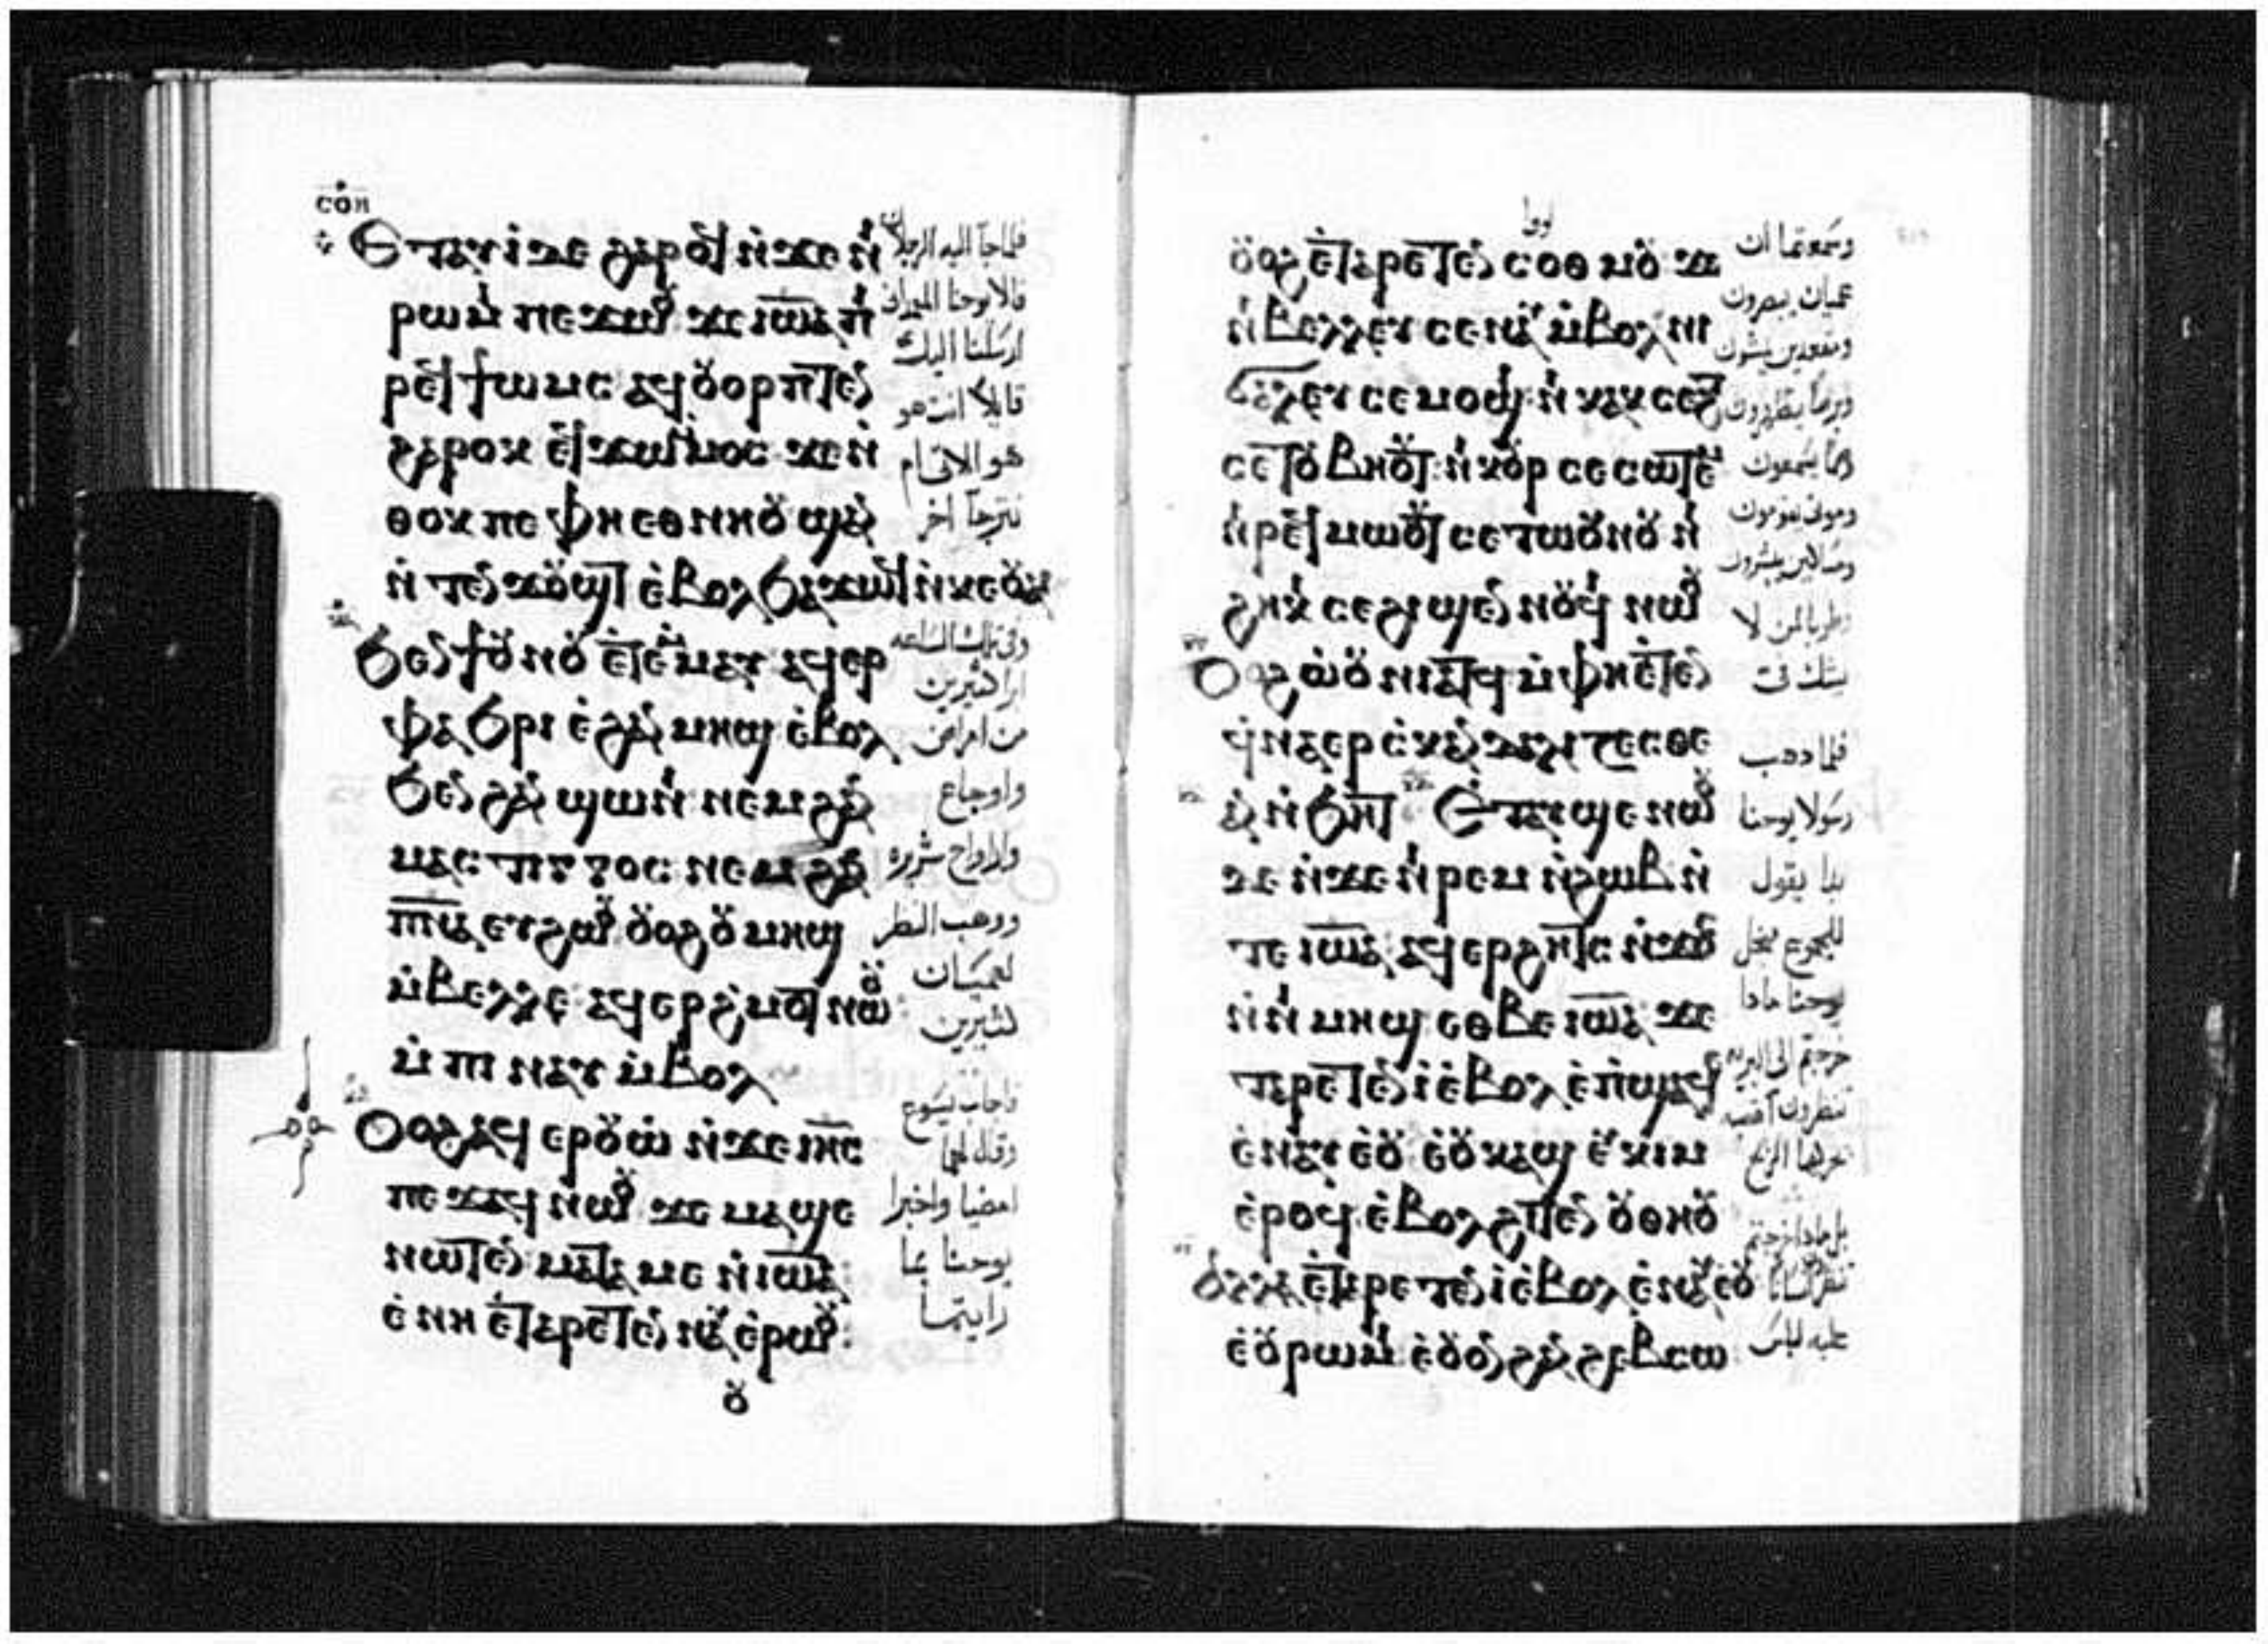 ⲥⲟⲏ
Ⲉⲧⲁⲩⲓ ⲇⲉ ϩⲁⲣⲟϥ ⲛ̇ϫⲉ ⲛⲓ
ⲣⲱⲙⲓ ⲡⲉϫⲱⲟⲩ ϫⲉ ⲓⲱⲁ ⲡⲓ
ⲣⲉϥϯⲱⲙⲥ ⲁϥⲟⲩⲟⲣⲡⲧⲉⲛ
ϩⲁⲣⲟⲕ ⲉϥϫⲱ ⲙ̇ⲙⲟⲥ ϫⲉ ⲛ̇
ⲑⲟⲕ ⲡⲉ ⲫⲏ ⲉⲑⲛⲏⲟⲩ ϣⲁⲛ
ⲛ̇ⲧⲉⲛϫⲟⲩϣⲧ ⲉ̇ⲃⲟⲗ ϧⲁϫⲱϥ ⲛ̇ⲕⲉⲟⲩⲁⲓ
Ϧⲉⲛ ϯⲟⲩⲛⲟⲩ ⲉ̇ⲧⲉⲙ̇ⲙⲁⲩ ⲁϥⲉⲣ
ⲫⲁϧⲣⲓ ⲉ̇ϩⲁⲛⲙⲏϣ ⲉ̇ⲃⲟⲗ
ϧⲉⲛ ϩⲁⲛϣⲱⲛⲓ ⲛⲉⲙ ϩⲁⲛ
ⲙⲁⲥⲧⲓⲅⲅⲟⲥ ⲛⲉⲙ ϩⲁⲛ
ⲡⲛⲁ ⲉⲩϩⲱⲟⲩ ⲟⲩⲟϩ ⲟⲩⲙⲏϣ
ⲙ̇ⲃⲉⲗⲗⲉ ⲁϥⲉⲣϩⲙⲟⲧ ⲛⲱⲟⲩ
ⲙ̇ⲡⲓⲛⲁⲩ ⲙ̇ⲃⲟⲗ
Ⲟⲩⲟϩ ⲁϥⲉⲣⲟⲩⲱ̇ ⲛ̇ϫⲉ ⲓⲏⲥ
ⲡⲉϫⲁϥ ⲛⲱⲟⲩ ϫⲉ ⲙⲁϣⲉ
ⲛⲱⲧⲉⲛ ⲙⲁⲧⲁⲙⲉ ⲛ̇ⲓⲱⲁ
ⲉ̇ⲛⲏ ⲉ̇ⲧⲁⲣⲉⲧⲉⲛⲛⲁⲩ ⲉ̇ⲣⲱⲟⲩ
ⲟⲩ
فلما جآ اليه الرجلان
قالا يوحنا المعمدان
ارسلنا اليك
قايلا انت هو
هو الاتى ام
نترجآ اخر
وفى تلك الساعه
ابرا كثيرين
من امراض
واوجاع
وارواح شريره
ووهب النظر
لعميان
كثيرين
فاجاب يسوع
وقال لهما
امضيا واخبرا
يوحنا بما
رايتما
لوقا
ⲟⲩⲟϩ ⲉ̇ⲧⲁⲣⲉⲧⲉⲛⲥⲟⲑⲙⲟⲩ ϫⲉ
ⲛⲓⲃⲉⲗⲗⲉⲩ ⲥⲉⲛⲁⲩ ⲙ̇ⲃⲟⲗ ⲛⲓ
ϭⲁⲗⲉⲩ ⲥⲉⲙⲟϣⲓ ⲛⲓⲕⲁⲕⲥⲉϩⲧ
ⲥⲉⲧⲟⲩⲃⲏⲟⲩⲧ ⲛⲓⲕⲟⲩⲣ ⲥⲉⲥⲱⲧⲉⲙ
ⲛⲓⲣⲉϥⲙⲱⲟⲩⲧ ⲥⲉⲧⲱⲟⲩⲛⲟⲩ ⲛⲓ
ϩⲏⲕⲓ ⲥⲉϩⲓϣⲉⲛⲛⲟⲩϥⲓ ⲛⲱⲟⲩ
Ⲟⲩⲟϩ ⲱ̇ⲟⲩⲛⲓⲁⲧϥ ⲙ̇ⲫⲏ ⲉ̇ⲧⲉⲛ
ϥ̇ⲛⲁⲉⲣⲥ̇ⲕⲁⲛⲇⲁⲗⲓⲍⲉⲥⲑⲉ
ⲁⲛ ⲛ̇ϧⲏⲧ Ⲉ̇ⲧⲁⲩϣⲉⲛⲱⲟⲩ
ⲇⲉ ⲛ̇ϫⲉ ⲛⲓⲣⲉⲙⲛ̇ϩⲱⲃ ⲛ̇
ⲧⲉ ⲓⲱⲁ ⲁϥⲉⲣϩⲏⲧⲥ ⲛ̇ϫⲟⲥ
ⲛ̇ⲛⲓⲙⲏϣ ⲉⲑⲃⲉ ⲓⲱⲁ ϫⲉ
ⲧⲁⲣⲉⲧⲉⲛⲓ̇ ⲉ̇ⲃⲟⲗ ⲉ̇ⲡϣⲁϥⲉ
ⲉ̇ⲛⲁⲩ ⲉ̇ⲟⲩ ⲉ̇ⲟⲩⲕⲁϣ ⲉϥⲕⲓⲙ
ⲉ̇ⲣⲟϥ ⲉ̇ⲃⲟⲗ ϩⲓⲧⲉⲛ ⲟⲩⲑⲏⲟⲩ
Ⲁⲗⲗⲁ ⲉ̇ⲧⲁⲣⲉⲧⲉⲛⲓ̇ ⲉ̇ⲃⲟⲗ ⲉ̇ⲛⲁⲩ ⲉ̇ⲟⲩ
ⲉ̇ⲟⲩⲣⲱⲙⲓ ⲉ̇ⲟⲩⲟⲛ ϩⲁⲛϩⲉⲃⲥⲱ
وسمعتما ان
عميان يبصرون
ومقعدين يمشون
وبرصا يتطهرون
وصما يسمعون
وموتى يقومون
ومساكين يبشرون
وطوبا لمن لا
يشك فى
فلما ذهب
رسولا يوحنا
بدا يقول
للجموع لاجل
يوحنا ماذا
خرجتم الى البريه
تنظرون اقصبه
تحركها الريح
عليه لباس